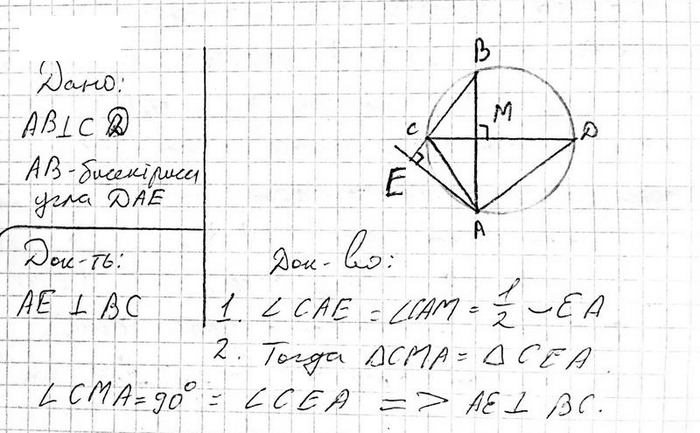 Дано:
AB⊥CD
AB-биссектриса
угла DAE
Док-ть:
AE ⊥ BC
B
C
M
D
E
A
Док-во:
1. ∠CAE = ∠CAM = 1/2 ⌣EA
2. Тогда ΔCMA = ΔCEA
∠CMA=90° = ∠CEA => AE⊥BC.